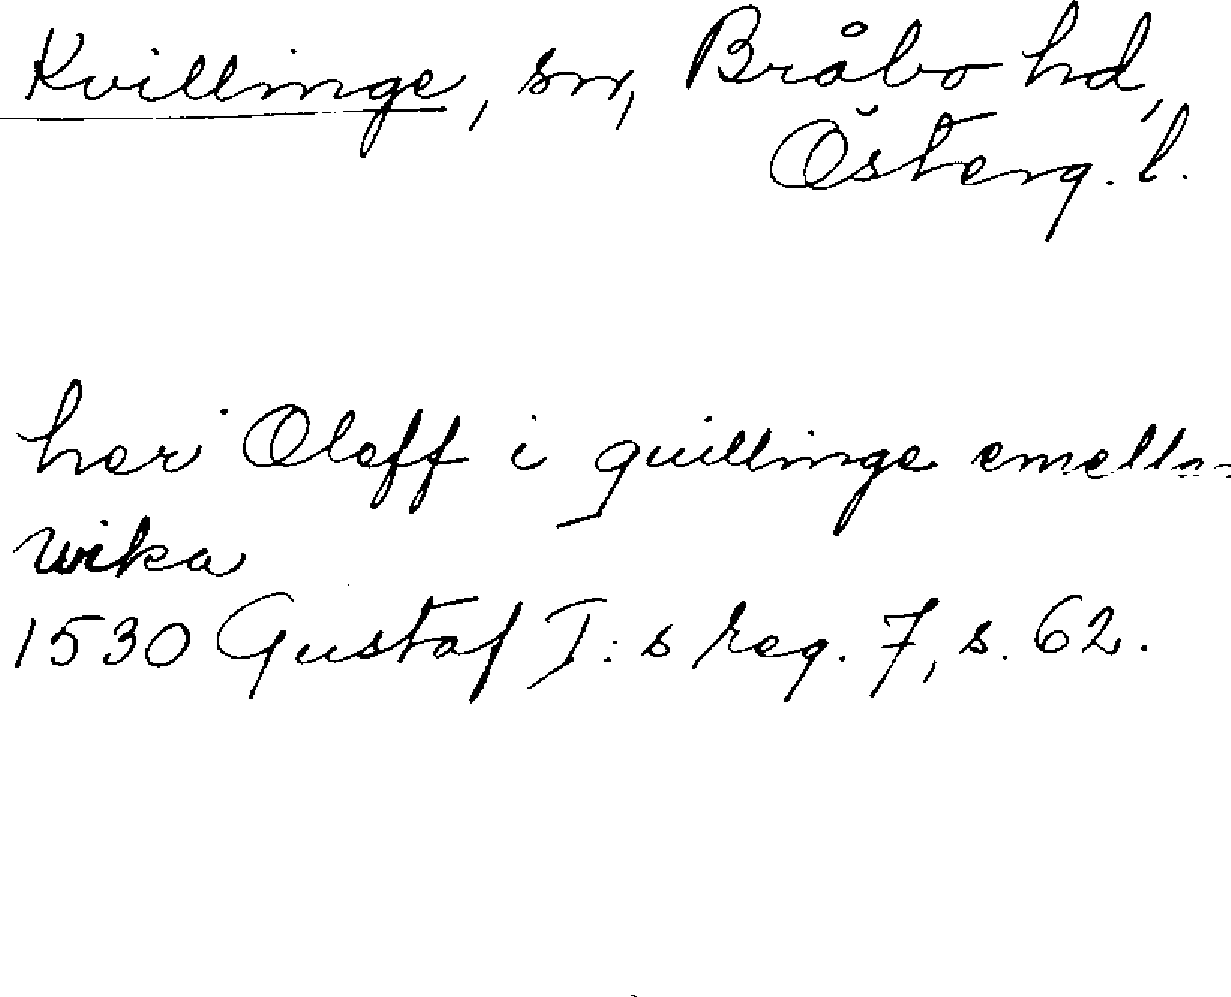 Kvillinge, sn, Bråbo hd,
Österg. l.
her Oleff i quillinge emellan
wika
1530 Gustaf I:s reg. 7, s. 62.